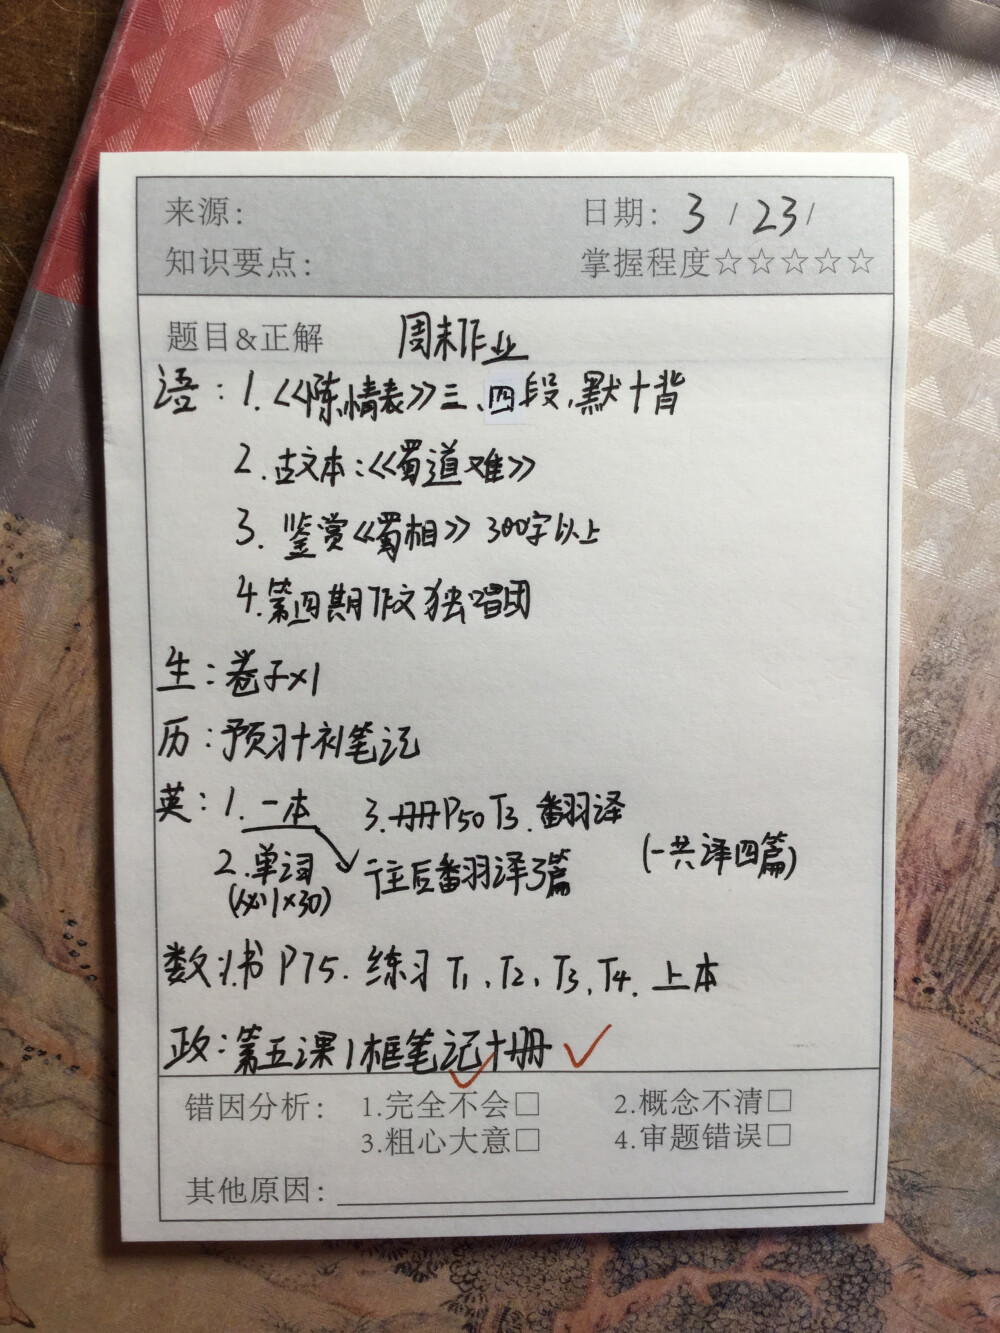 来源:
日期: 3 / 23 /
知识要点:
掌握程度☆☆☆☆☆
题目&正解 周末作业
语: 1.《陈情表》三、四段,默+背
2.古文本:《蜀道难》
3.鉴赏《蜀相》300字以上
4.第四期作文独唱团
生:卷子×1
历:预习+补笔记
英: 1.一本 3.册P50 T3.翻译
2.单词 往后翻译3篇 (一共译四篇)
(必1×30)
数:书P75.练习T1、T2、T3、T4.上本
政:第五课1框笔记+册
错因分析: 1.完全不会□ 2.概念不清□
3.粗心大意□ 4.审题错误□
其他原因: